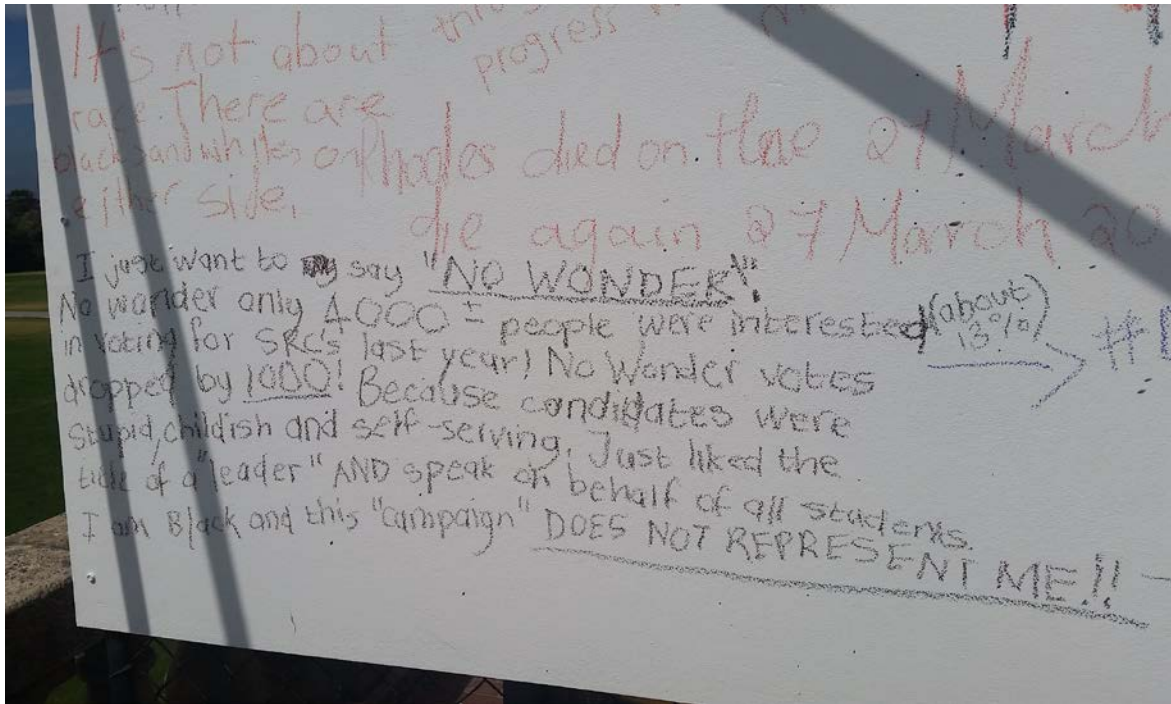 It's not about
race. There are
blacks and whites on
either side.
progress
Rhodes died on the 27 March
die again 27 March 20
I just want to say "NO WONDER"!
No wonder only 4000 ± people were interested (about 13%)
in voting for SRC's last year! No Wonder votes
dropped by 1000! Because candidates were
stupid, childish and self-serving. Just liked the
title of a "leader" AND speak on behalf of all students.
I am Black and this "campaign" DOES NOT REPRESENT ME!!